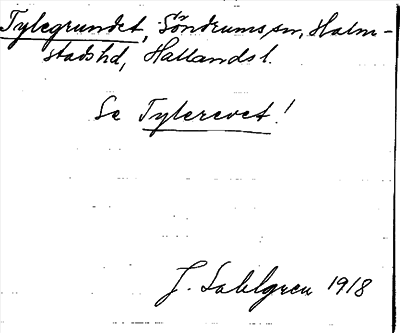 Tylegrundet, Söndrums sn, Halm-
stads hd, Hallands l.
Se Tylerevet!
J. Sahlgren 1918